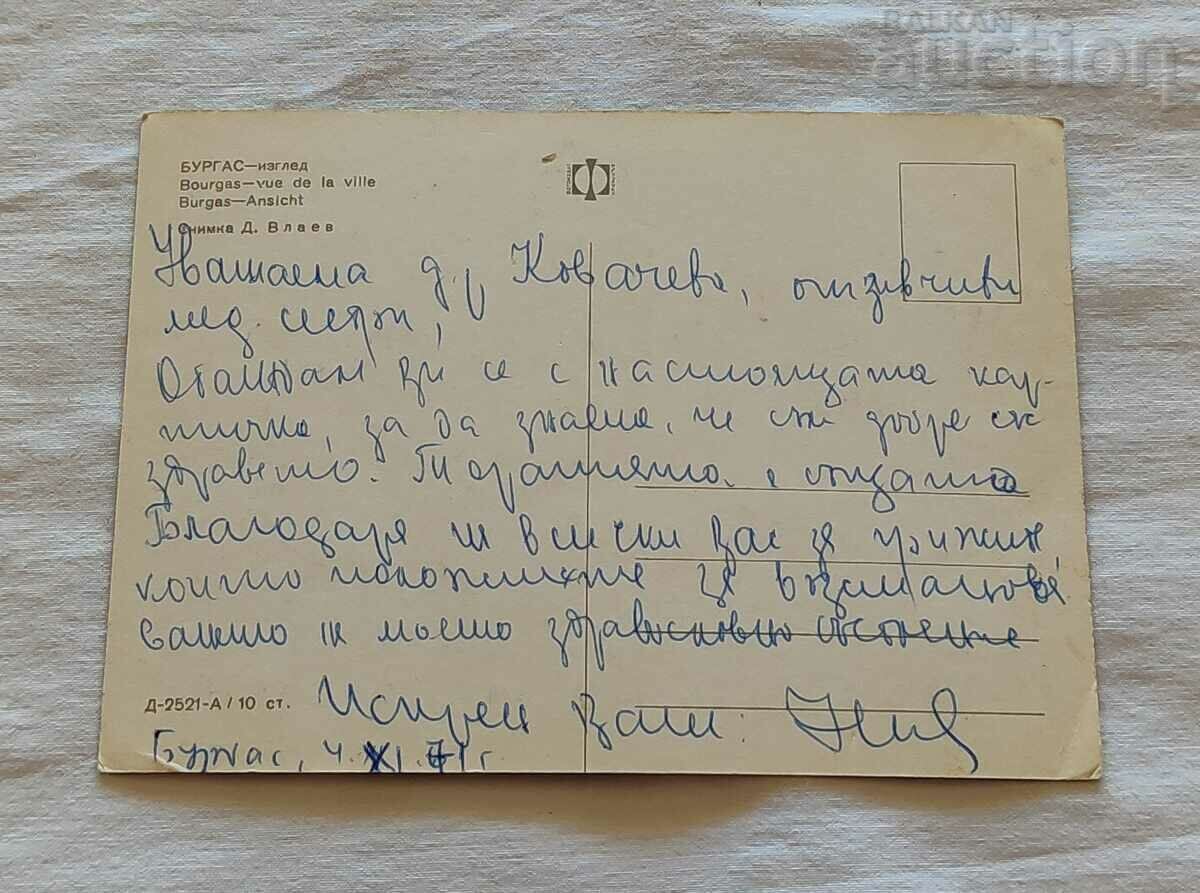 BALKAN
auction
БУРГАС—изглед
Bourgas—vue de la ville
Burgas—Ansicht
Снимка Д. Влаев
Уважаема д-р Ковачева, отзивчиви
мед. сестри,
Обаждам ви се с настоящата кар-
тичка, за да знаете, че съм добре със
здравето. е същата
Благодаря на всички вас за грижите,
които положихте за възстановя-
ването на моето здравословно състояние
Д-2521-А / 10 ст.
Искрен Ваш:
Бургас, 4.XI.71 г